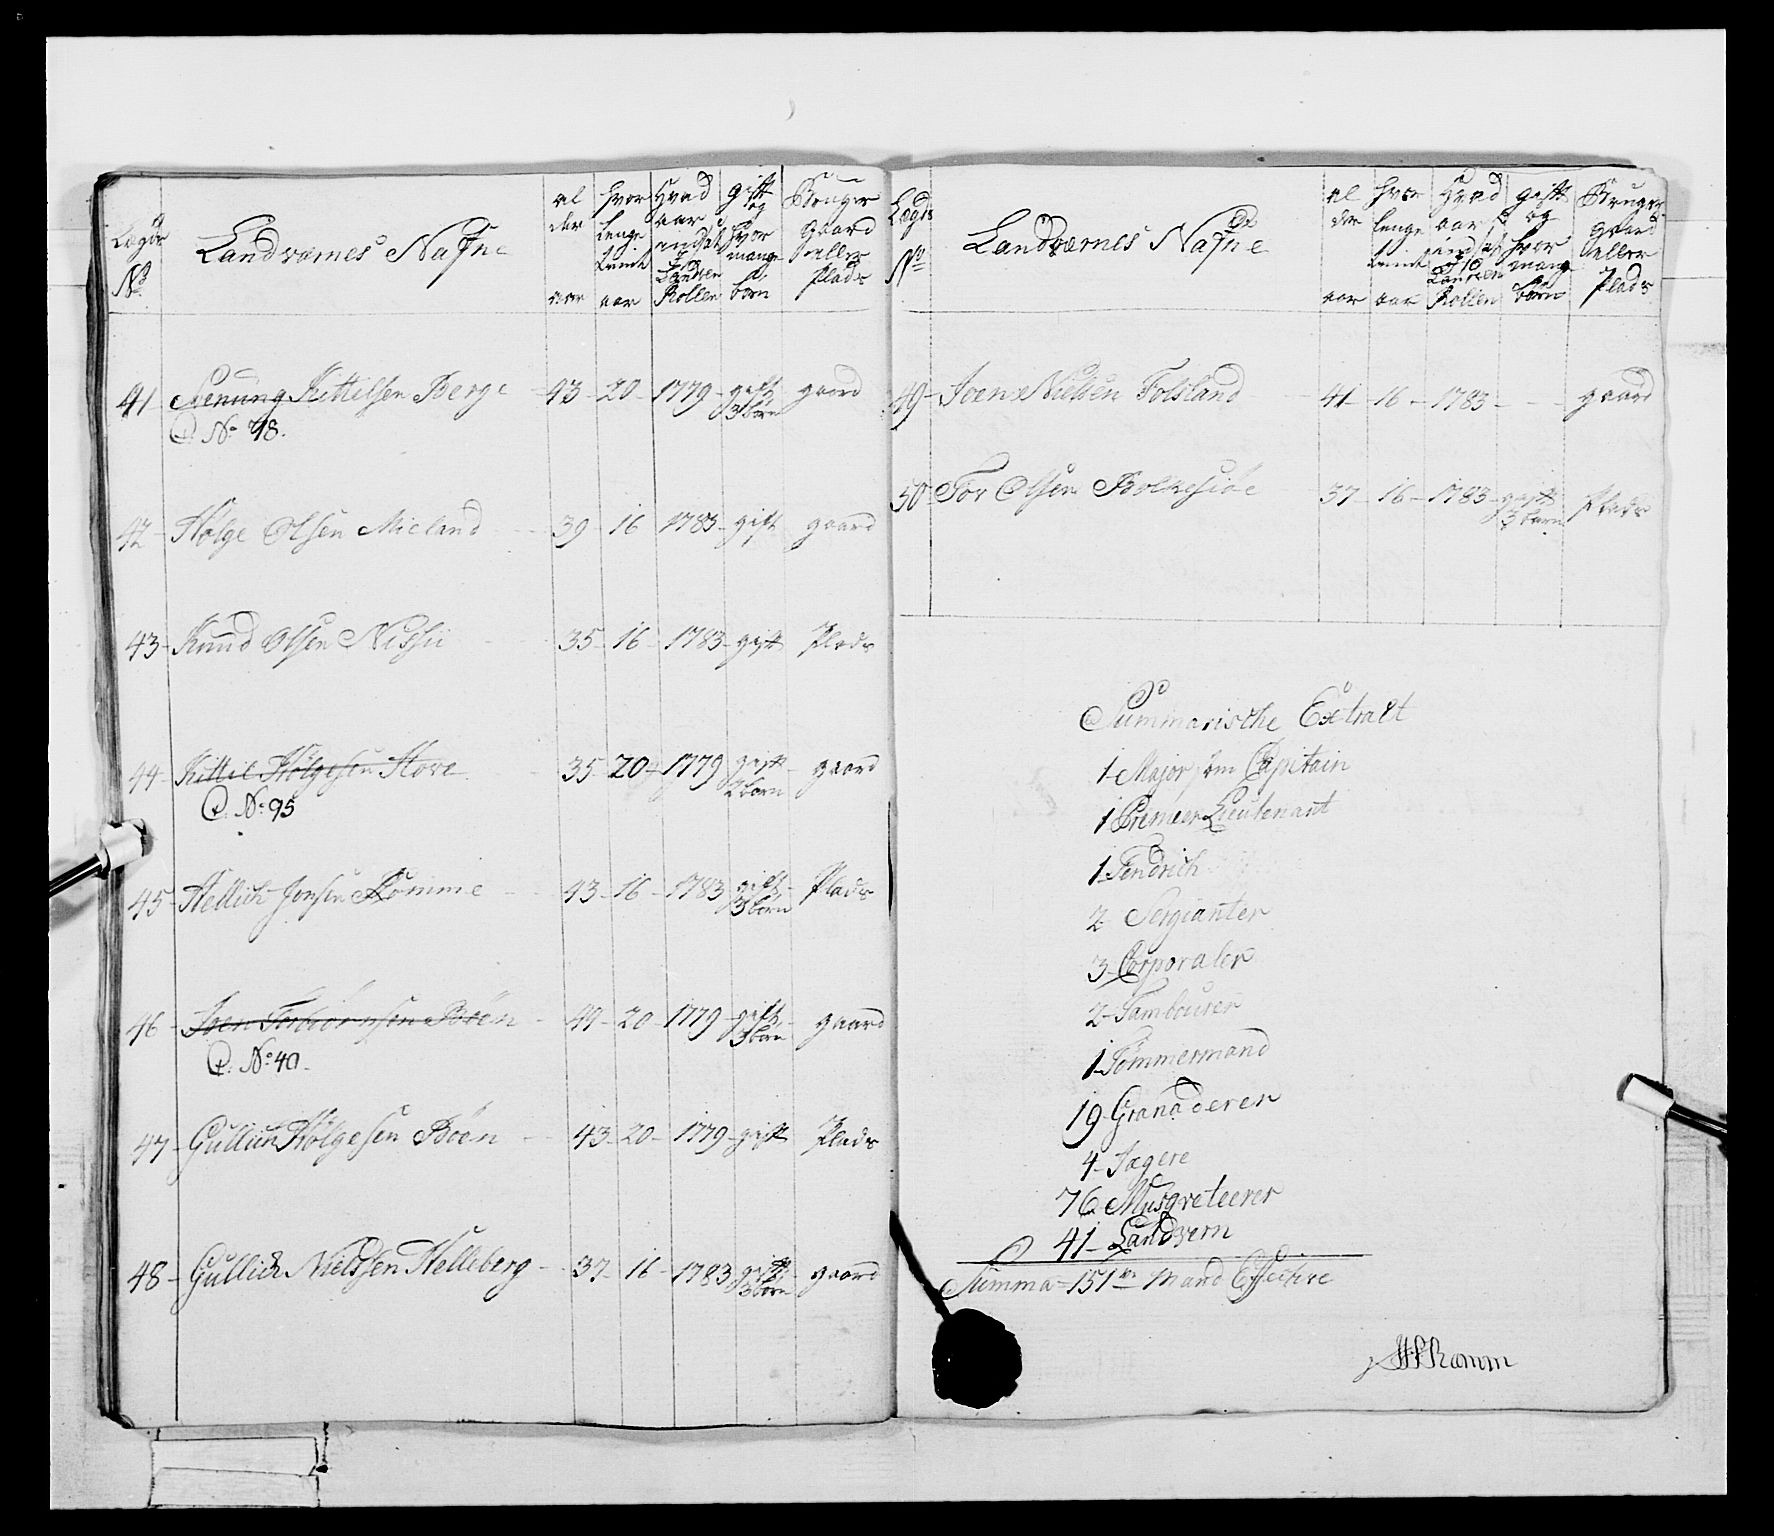 Lægds No
Landværnes Nafne
al der aar
hvor lenge tient aar
Hvad aar indsat i Landvern Rollen
gift og hvor mange børn
Bruger Gaard eller Plads
41 Kittelsen Berge 43 20 1779 gift 3 børn gaard
C. No 48.
42 Holge Olsen Mieland 39 16 1783 gift gaard
43 Knud Olsen 35 16 1783 gift Plads
44 Kittil Hølgesen Hove 35 20 1779 gift 2 børn gaard
C. No 95
45 Hellich Jonsen Romme 43 16 1783 gift 3 børn Plads
46 Joen Torbiørnsen Bøen 49 20 1779 gift 3 børn gaard
C. No 40.
47 Gullich Hølgesen Bøen 43 20 1779 gift Plads
48 Gullich Nielssen Helleberg 37 16 1783 gift 3 børn gaard
Lægds No
Landværnes Nafne
al der aar
hvor lenge tient aar
Hvad aar indsat i Landvern Rollen
gift og hvor mange børn
Bruger gaard eller Plads
49 Joen Nielsen Folsland 41 16 1783 gaard
50 Tor Olsen Bolkesiøe 37 16 1783 gift 3 børn Plads
Summarische Extrakt
1 Major som Capitain
1 Premier Lieutenant
1 Fendrich
2 Sergianter
3 Corporaler
2 Tambourer
1 Tømmermand
19 Granaderer
4 Jægere
76 Musqveteerer
41 Landvern
Summa 151 Mand Effective
Ramm